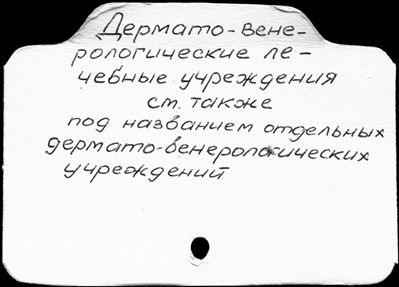 Дермато-вене-
рологические ле-
чебные учреждения
см. также
под названием отдельных
дермато-венерологических
учреждений